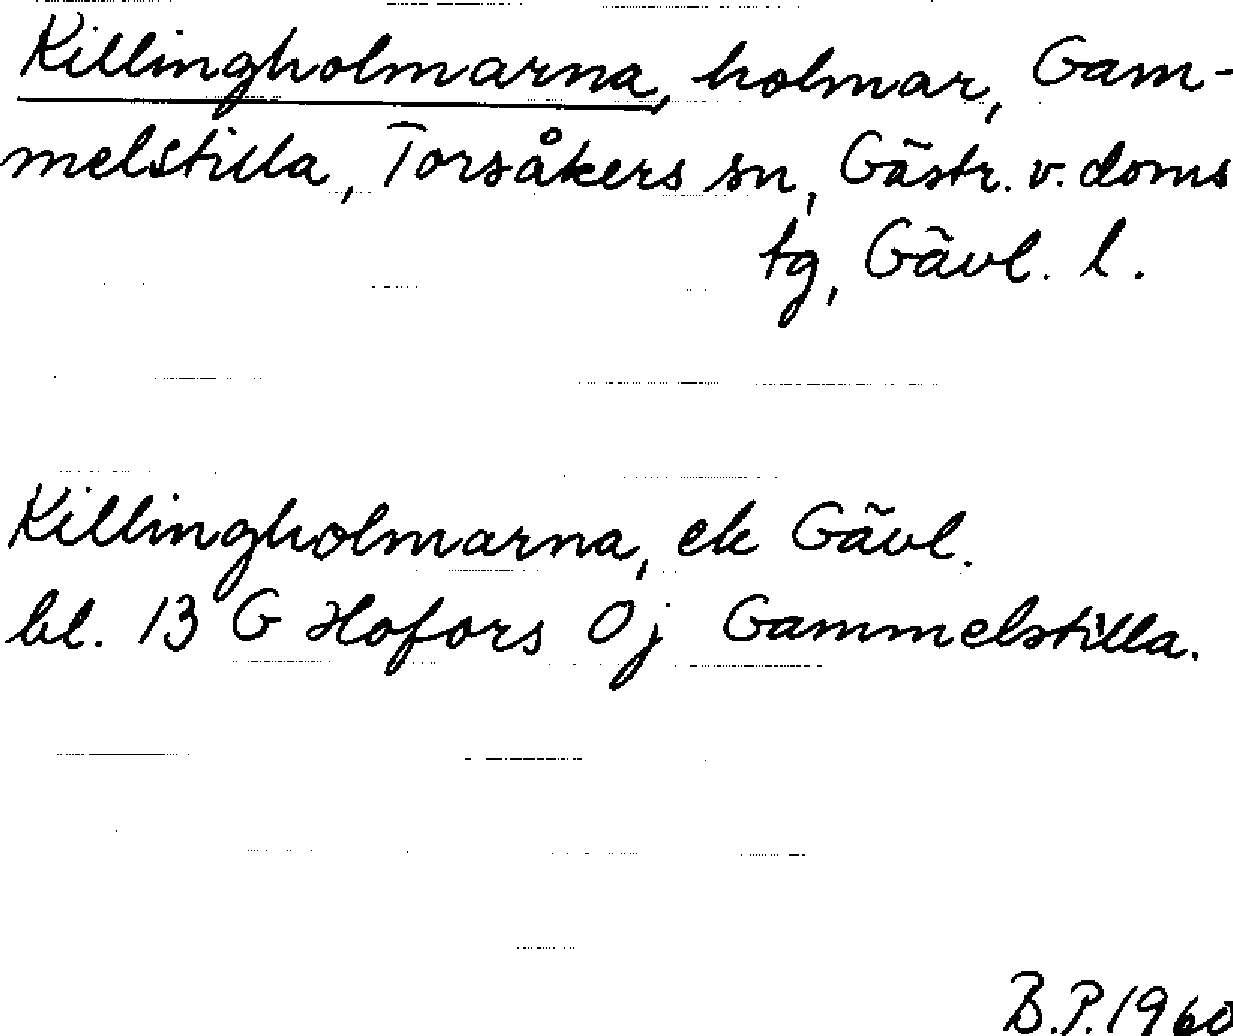 Killingholmarna, holmar, Gam-
melstilla, Torsåkers sn, Gästr. v. doms
tg, Gävl. l.
Killingholmarna, ek Gävl.
bl. 13 G Hofors 0j Gammelstilla.
B.P. 1960